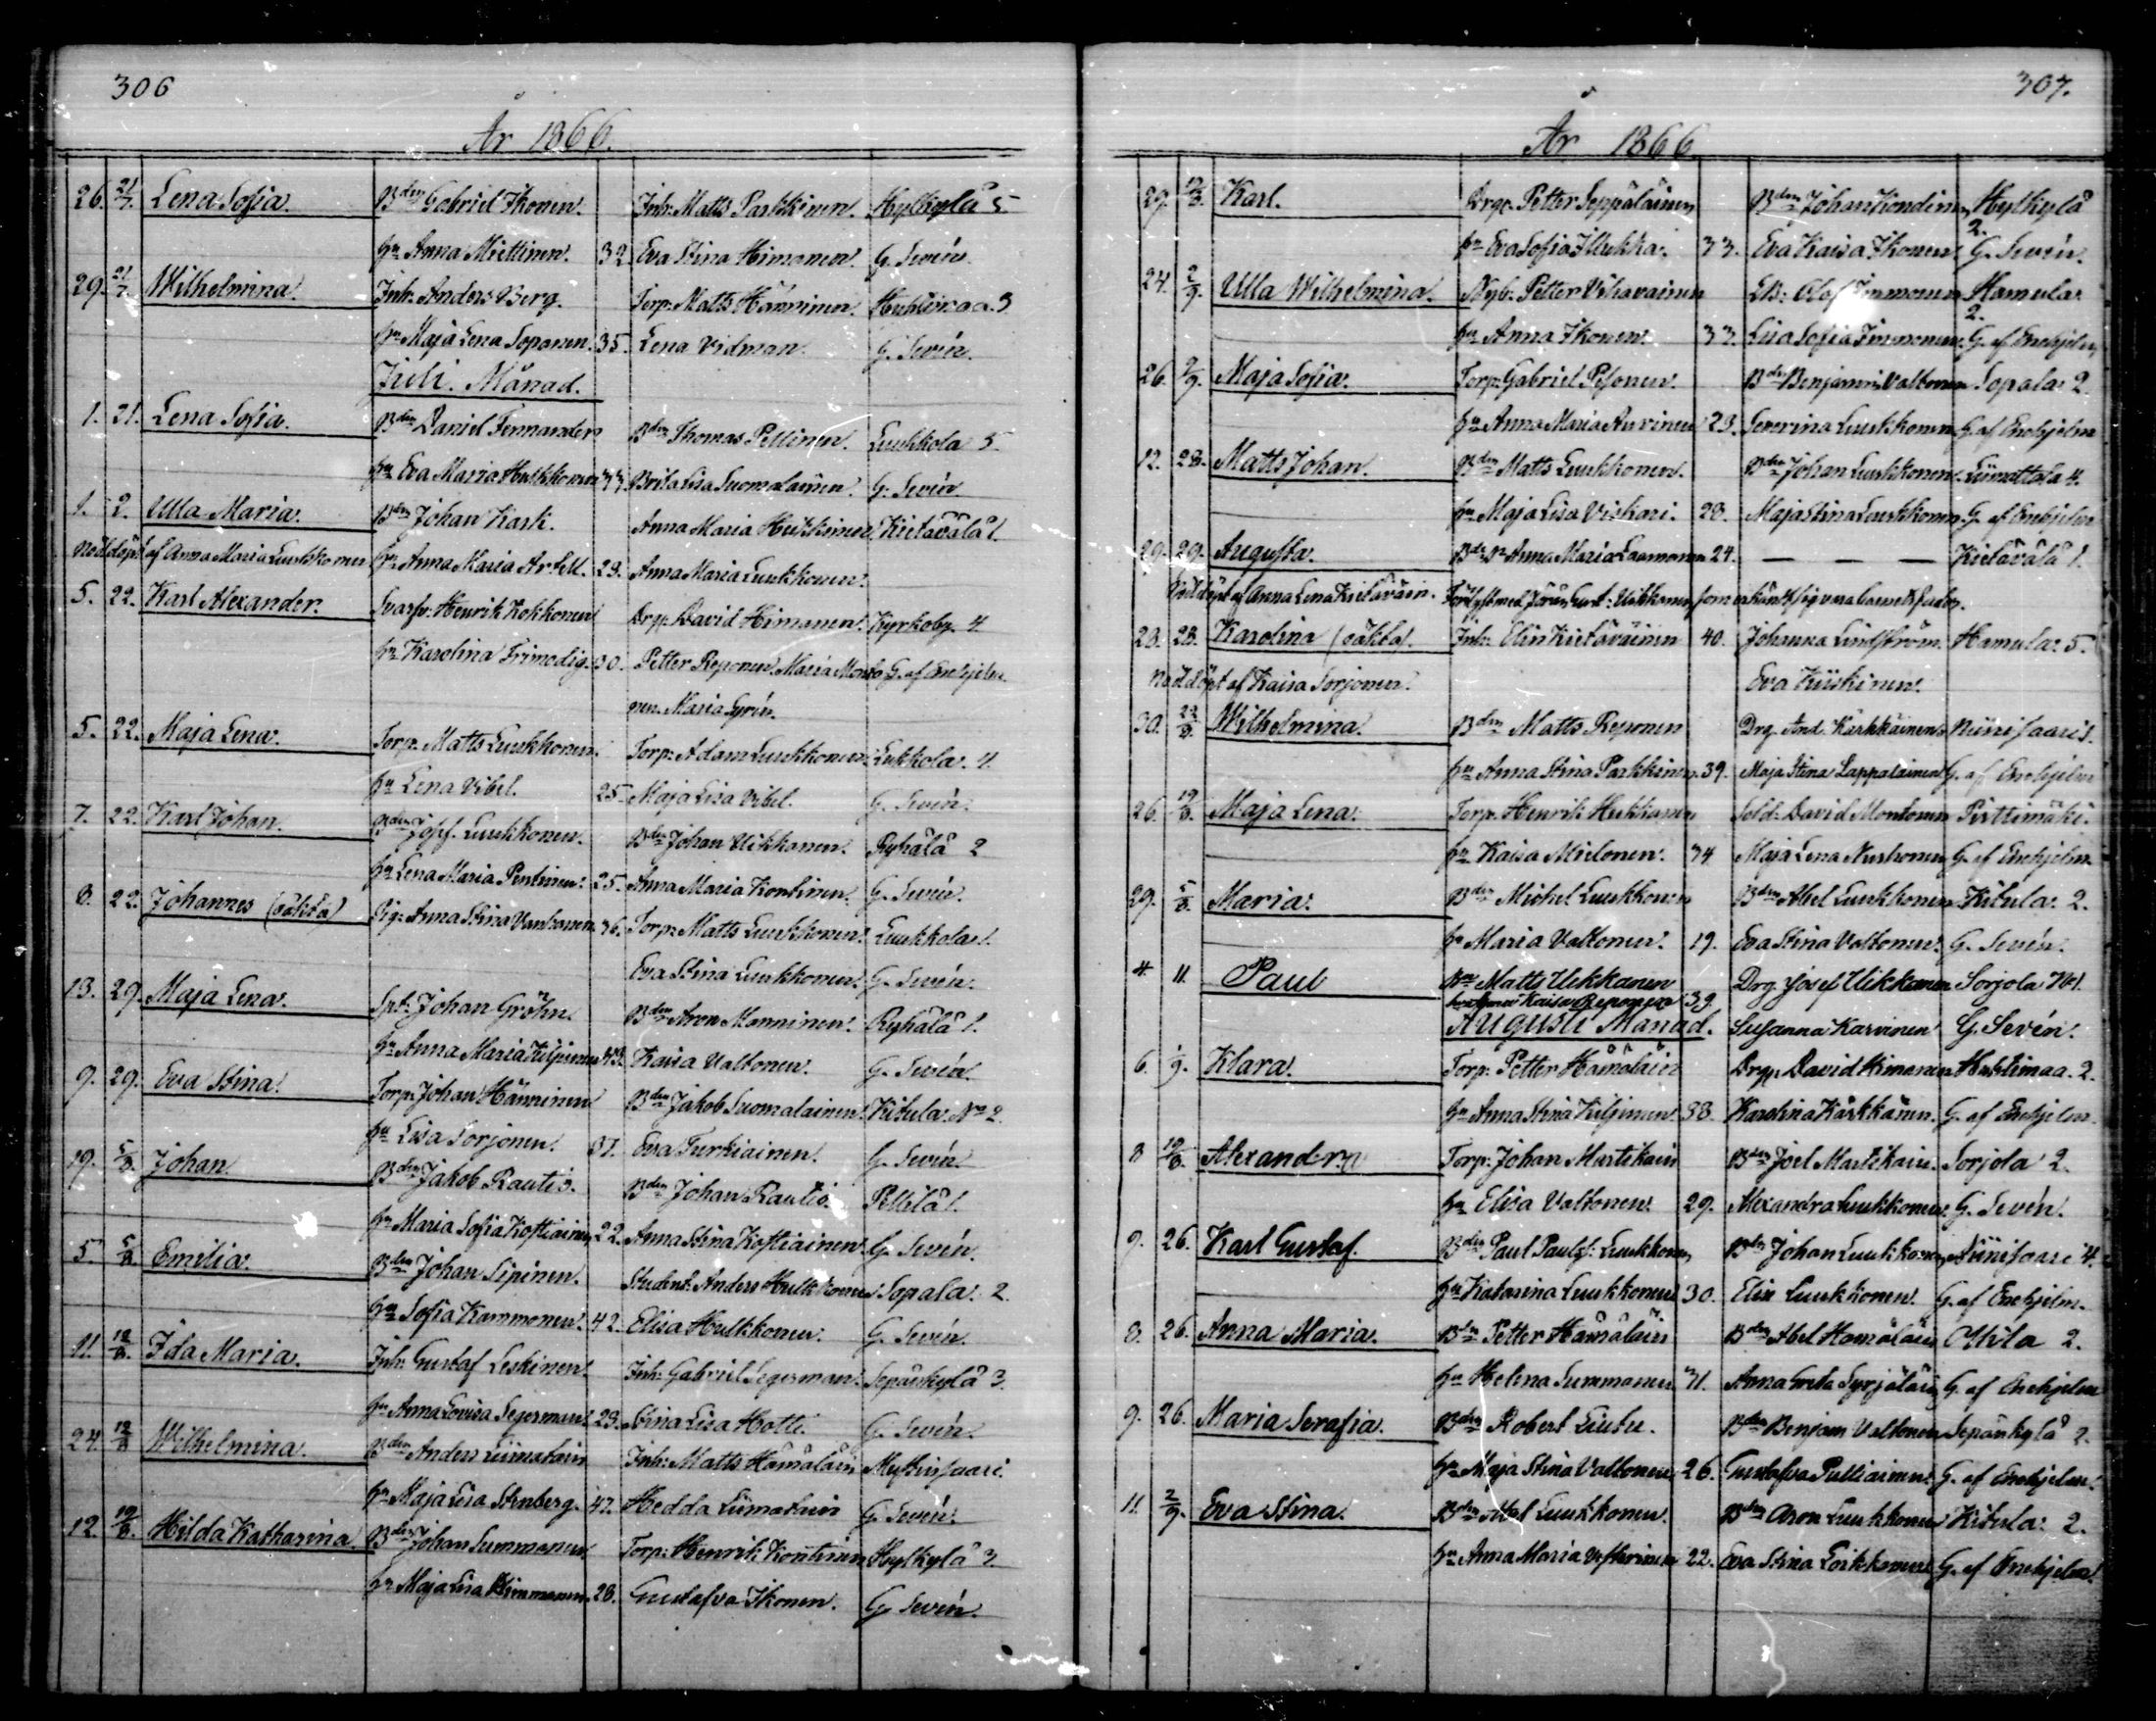 306
År 1866.
26. 21/7. Lena Sofia. Bdn Gabriel Ikonen. Inh: Matts Parkkinen. Hylkylä 5
hu Anna Miettinen. 32 Eva Stina Himanen. G. Sevén.
29. 21/7. Wilhelmina. Inh: Anders Berg. Torp: Matts Hänninen. Huhtimaa. 3
hu Maja Lena Sopanen. 35. Lena Vidman. G. Sevén.
Juli. Månad.
1. 21. Lena Sofia. Bdn Daniel Fernander Bdn Thomas Pellinen. Luukkola 5.
hu Eva Maria Hulkkonen 33. Brita Lisa Suomalainen. G. Sevén.
1. 2. Ulla Maria. Bdn Johan Karh. Anna Maria Heikkinen. Kietävälä 1.
Nöddöpt af Anna Maria Luukkonen hu Anna Maria 23. Anna Maria Luukkonen.
5. 22. Karl Alexander. Svarfv: Henrik Kokkonen Drg: David Himanen. Kyrkoby. 4
hu Karolina Frimodig. 30. Petter Reponen. Maria G. af Enehjelm.
nen. Maria
5. 22. Maja Lena. Torp: Matts Luukkonen. Torp: Adam Luukkonen. Lukkola. 4.
hu Lena Vibel. 25. Maja Lisa Vibel. G. Sevén.
7. 22. Karl Johan. Bdn Josf. Luukkonen. Bdn Johan Uikkanen. Ryhälä 2
hu Lena Maria Pentinen. 25. Anna Maria Kontinen. G. Sevén.
8. 22. Johannes (oäkta) Pig: Anna Stina Vanhanen. 36. Torp: Matts Luukkonen. Luukkola 1.
Eva Stina Luukkonen. G. Sevén.
13. 29. Maja Lena. Johan Gröhn. Bdn Aron Manninen. Ryhälä 1.
hu Anna Maria Kilpinen 43. Kaisa Valtonen. G. Sevén.
9. 29. Eva Stina. Torp: Johan Hänninen Bdn Jakob Suomalainen. Kitula No 2.
hu Lisa Sorjonen. 37. Eva Turkiainen. G. Sevén.
19. 5/8. Johan Bdn Jakob Rautio. Bdn Johan Rautio. Pellilä 1.
hu Maria Sofia Kostiainen 22. Anna Stina Kostiainen. G. Sevén.
5. 5/8. Emilia. Bdn Johan Sipinen. Student. Anders Hulkkonen. Sopala. 2.
hu Sofia Kammonen. 42. Elisa Hulkkonen. G. Sevén.
11. 12/8. Ida Maria. Inh: Gustaf Leskinen. Inh: Gabriel Segerman. Sepänkylä 3.
hu Anna Lovisa Segerman. 23. Stina Lisa Hotti. G. Sevén.
24. 12/8 Wilhelmina. Bdn Anders Liimatain Inh: Matts Hämäläin
hu Maja Lisa Stenberg. 42. Hedda Liimatain G. Sevén.
12. 19/8. Hilda Katharina. Bdn Johan Summanen Torp: Henrik Kontinen Hylkylä 3
hu Maja Lisa 28. Gustafva Ikonen. G. Sevén.
307.
År 1866
29. 12/8. Karl. Drgp. Petter Seppäläinen Bdn Johan Kondinen Hylkylä
2.
hu Eva Sofia Illukka. 33. Eva Kaisa Ikonen G. Sevén.
24. 2/9. Ulla Wilhelmina. Nyb: Petter Vihavainen Olof Immonen Hamula
2.
hu Anna Ikonen. 33. Lisa Sofia Immonen. G. af Enehjelm
26. 9/9. Maja Sofia. Torp: Gabriel Pesonen. Bdn Benjamin Valtonen Sopala 2.
hu Anna Maria Auvinen 23. Severina Luukkonen G. af Enehjelm
12. 28. Matts Johan. Bdn Matts Luukkonen. Bdn Johan Luukkonen. Liimattala 4.
hu Maja Lisa Viskari. 28. Maja Stina Luukkonen G. af Enehjelm
29. 29. Augusta. Anna Maria Laamanen 24. — — — Kietävälä 1.
Nöddöpt af Anna Lena Kietäväin. som erkänt sig vara barnets fader.
28. 28. Karolina (oäkta). Inh: Elin Kietäväinen 40. Johanna Lindström. Hamula 5.
Nöddöpt af Kaisa Sorjonen. Eva Kiiskinen.
30. Wilhelmina. Bdn Matts Reponen Drg. And. Kärkkäinen Niinisaari 1.
hu Anna Stina Parkkinen 39. Maja Stina Lappalainen G. af Enehjelm
26. 19/8. Maja Lena. Torp. Henrik Heikkanen Sold: David Montonen Pirttimäki.
hu Kaisa Mielonen. 34 Maja Lena G. af Enehjelm.
29. 5/8. Maria. Bdn Michel Luukkonen Bdn Abel Luukkonen Kitula. 2.
hu Maria Valtonen. 19. Eva Stina Valtonen. G. Sevén.
4 11 Paul Matts Uikkanen Drg. Josef Uikkanen Sorjola No 1.
Kaisa Reponen 39.
Augusti Månad. Susanna Karvinen G. Sevén.
6. 1/9. Klara. Torp: Petter Hämäläin Drgp: David Himanen Huhtimaa. 2.
hu Anna Stina Kilpinen 38. Karolina Kärkkänen. G. af Enehjelm.
8 19/8. Alexandra Torp: Johan Martikain Bdn Joel Martikain. Sorjola 2.
hu Elisa Valtonen. 29. Alexandra Luukkonen. G. Sevén.
9. 26. Karl Gustaf. Bdn Paul Paulss: Luukkonen Bdn Johan Luukkonen Niinisaari 4.
hu Katarina Luukkonen 30. Elin Luukkonen. G. af Enehjelm.
8. 26. Anna Maria. Bdn Petter Hämäläin Bdn Abel Hämäläin Ollila 2.
hu Helena Summanen 31. Anna Greta Syrjäläin G. af Enehjelm
9. 26. Maria Serafia. Bdn Robert Liutu. Bdn Benjam Valtonen Sepänkylä 2.
hu Maja Stina Valtonen 26. Gustafva Pulliainen. G. af Enehjelm.
11. 2/9. Eva Stina. Bdn Abel Luukkonen. Bdn Aron Luukkonen Kitula 2.
hu Anna Maria 22. Eva Stina Loikkanen G. af Enehjelm.